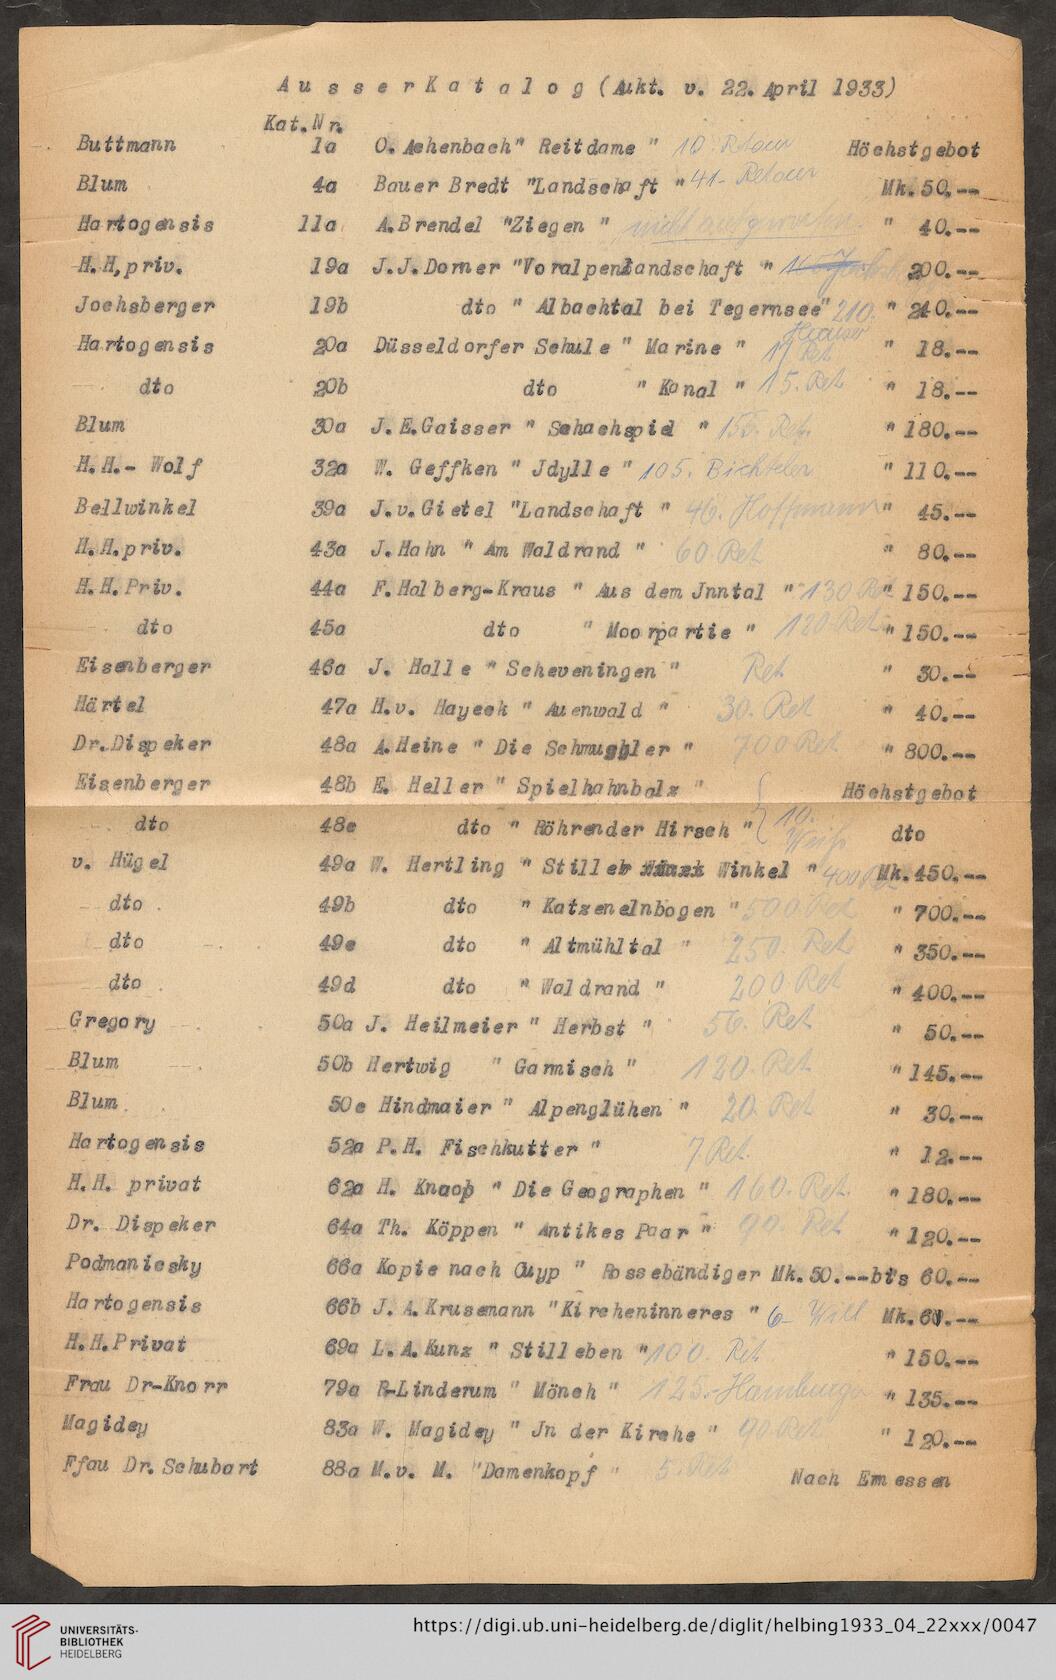 AusserKatalog (Aukt. v. 22. April 1933)
Kat.Nr.
Buttmann 1a O. Achenbach" Reitdame " 10. Retour Höchstgebot
Blum 4a Bauer Bredt "Landschaft " 41- Retour Mk. 50.--
Hartogensis 11a A.Brendel "Ziegen " nicht aufgeworfen " 40.--
H.H,priv. 19a J.J.Dorner "Voralpenlandschaft " " 200.--
Jochsberger 19b dto " Albachtal bei Tegernsee" 210. Hauser " 210.--
Hartogensis 20a Düsseldorfer Schule " Marine " 17 Ret " 18.--
dto 20b dto " Kanal " 15. Ret " 18.--
Blum 30a J.E.Gaisser " Schachspiel " 155. Ret. " 180.--
H.H.- Wolf 32a W. Geffken " Jdylle " 105. Bichteler " 110.--
Bellwinkel 39a J.v.Gietel "Landschaft " 46. Hoffmann " 45.--
H.H.priv. 43a J.Hahn " Am Waldrand " 60 Ret " 80.--
H.H.Priv. 44a F.Halberg-Kraus " Aus dem Jnntal " 130 Ret " 150.--
dto 45a dto " Moorpartie " 120 Ret " 150.--
Eisenberger 46a J. Halle " Scheveningen " Ret " 30.--
Härtel 47a H.v. Hayeck " Auenwald " 30. Ret " 40.--
Dr.Dispeker 48a A.Heine " Die Schmuggler " 700 Ret " 800.--
Eisenberger 48b E. Heller " Spielhahnbalz " Höchstgebot
dto 48c dto " Röhrender Hirsch " 10. Weiß dto
v. Hügel 49a W. Hertling " Stiller Winkel " 400 Ret Mk. 450.--
dto 49b dto " Katzenelnbogen " 500. Ret " 700.--
dto 49c dto " Altmühltal " 250. Ret " 350.--
dto 49d dto " Waldrand " 200 Ret " 400.--
Gregory 50a J. Heilmeier " Herbst " 50. Ret " 50.--
Blum 50b Hertwig " Garmisch " 120. Ret " 145.--
Blum 50c Hindmaier " Alpenglühen " 20. Ret " 30.--
Hartogensis 52a P.H. Fischkutter " 7. Ret. " 12.--
H.H. privat 62a H. Knoop " Die Geographen " 160. Ret. " 180.--
Dr. Dispeker 64a Th. Köppen " Antikes Paar " 90. Ret " 120.--
Podmaniczky 66a Kopie nach Cuyp " Rossebändiger Mk.50.--bis 60.--
Hartogensis 66b J.A.Krusemann "Kircheninneres " 6- Will Mk. 60.--
H.H.Privat 69a L.A.Kunz " Stilleben " 100. Ret " 150.--
Frau Dr-Knorr 79a R-Linderum " Mönch " 125.- Hamburger " 135.--
Magidey 83a W. Magidey " Jn der Kirche " 90. Ret " 120.--
Ffau Dr.Schubart 88a M.v. M. "Damenkopf " 5. Ret Nach Ermessen
UNIVERSITÄTS-
BIBLIOTHEK
HEIDELBERG
https://digi.ub.uni-heidelberg.de/diglit/helbing1933_04_22xxx/0047